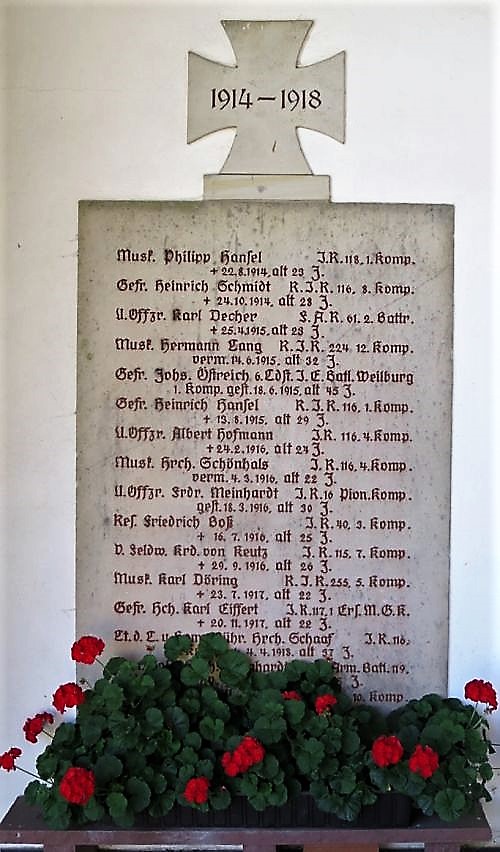 1914–1918
Musk. Philipp Hansel J.R. 118. 1. Komp.
+ 22.8.1914. alt 23 J.
Gefr. Heinrich Schmidt R.J.R. 116. 8. Komp.
+ 24.10.1914. alt 28 J.
U.Offzr. Karl Decher F.A.R. 61. 2. Battr.
+ 25.4.1915. alt 28 J.
Musk. Hermann Lang R.J.R. 224. 12. Komp.
verm. 14.6.1915. alt 32 J.
Gefr. Johs. Östreich 6. Ldst. J.E. Batl. Weilburg
1. Komp. gest. 18.6.1915. alt 45 J.
Gefr. Heinrich Hansel R.J.R. 116. 1. Komp.
+ 13.8.1915. alt 29 J.
U.Offzr. Albert Hofmann J.R. 116. 4. Komp.
+ 24.2.1916. alt 24 J.
Musk. Hrch. Schönhals J.R. 116. 4. Komp.
verm. 4.3.1916. alt 22 J.
U.Offzr. Frdr. Meinhardt J.R. 16 Pion. Komp.
gest. 18.3.1916. alt 30 J.
Res. Friedrich Boß J.R. 40. 3. Komp.
+ 16.7.1916. alt 25 J.
V. Feldw. Krd. von Keutz J.R. 115. 7. Komp.
+ 29.9.1916. alt 26 J.
Musk. Karl Döring R.J.R. 255. 5. Komp.
+ 23.7.1917. alt 22 J.
Gefr. Hch. Karl Eiffert J.R. 117. 1 Ers. M.G.K.
+ 20.11.1917. alt 22 J.
Lt. d. L. u. Komp. Führ. Hrch. Schaaf J.R. 116.
4.1918. alt 37 J.
hardt Arm. Batl. 119.
J.
10. Komp.